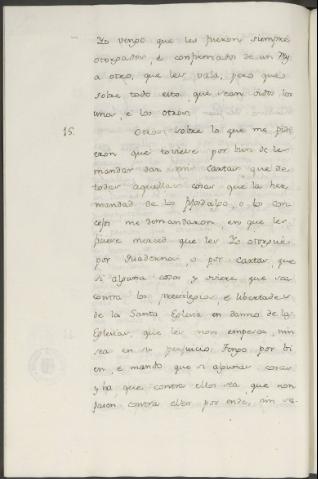 Yo vengo que les fueron siempre
otorgados, e confirmados de un Rey
a otro, que les vala, pero que
sobre todo esto, que sean oidos los
unos, e los otros.
15. Otrosi sobre lo que me pidie
eron que toviese por bien de les
mandar dar mis Cartas que de
todas aquellas cosas que la her
mandad de los fijosdalgo, o los con
cejos me demandaron, en que les
ficiere merced que les Yo otorgué
por Quadernos, o por Cartas, que
si alguna cosa y oviere que sea
contra los previlegios e libertades
de la Santa Eglesia en damno de las
Eglesias, que les non empesca, nin
sea en su perjuicio. Tengo por bi
en, e mando que si algunas cosas
y ha, que contra ellos sea, que non
sean contra ellos por ende, nin se-